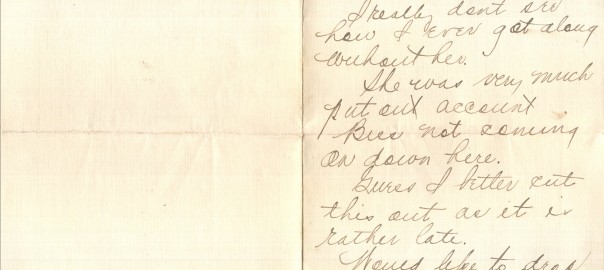 I really don't see
how I ever got along
without her.
She was very much
put out account
Bus not coming
on down here.
Gures I better cut
this out as it is
rather late.
Would like to drop